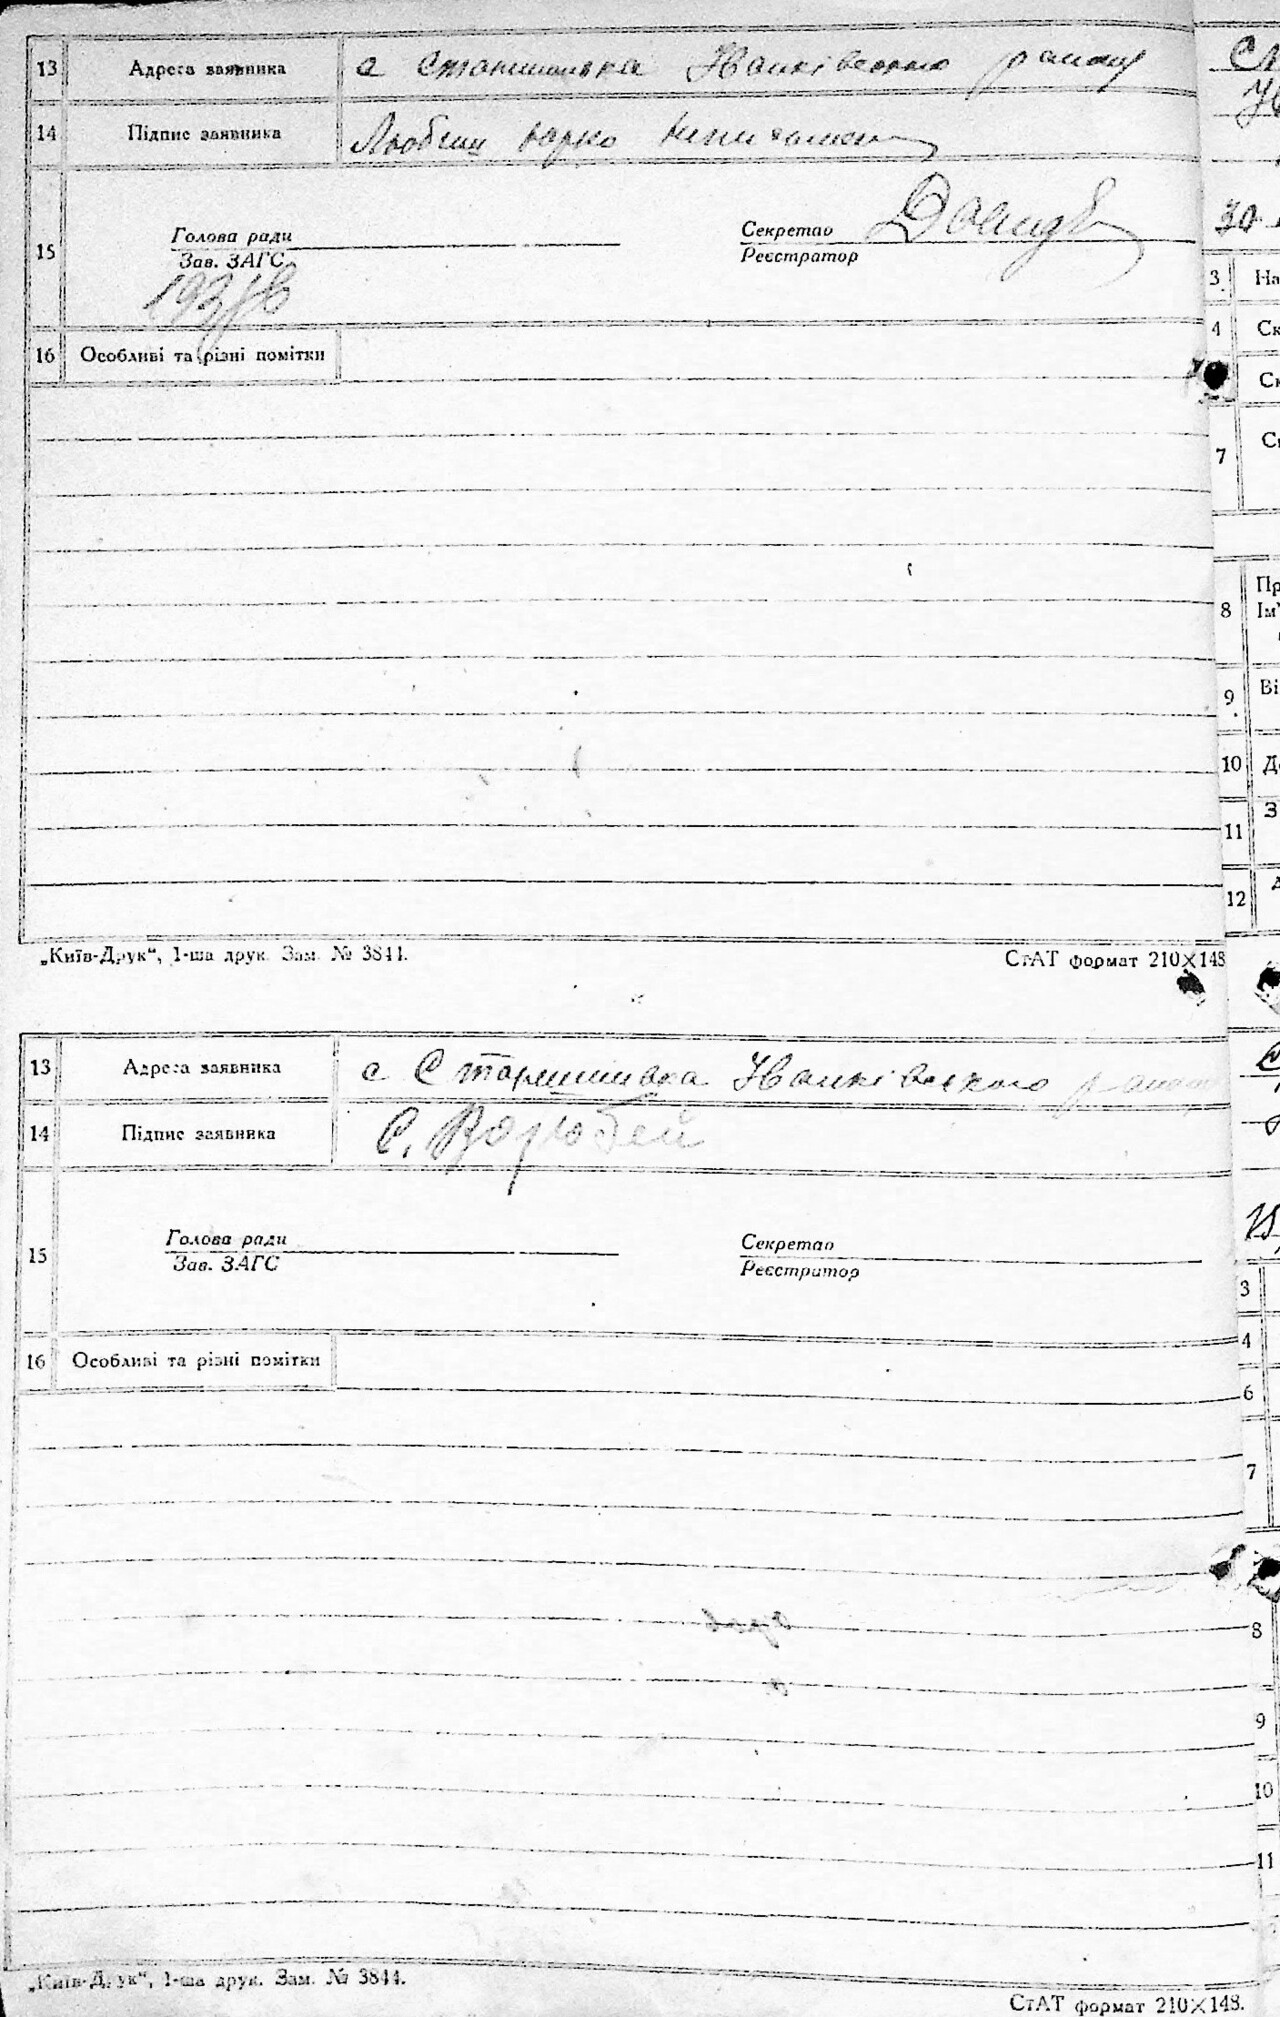 13 Адреса заявника с Станишивка Іванківського району
14 Підпис заявника
15
Голова ради
Зав. ЗАГС
Секретар
Реєстратор
16 Особливі та різні помітки
„Київ-Друк“, 1-ша друк. Зам. № 3844.
СтАТ формат 210×148
13 Адреса заявника с Станишивка Іванківського району
14 Підпис заявника С. Воробей
15
Голова ради
Зав. ЗАГС
Секретар
Реєстратор
16 Особливі та різні помітки
„Київ-Друк“, 1-ша друк. Зам. № 3844.
СтАТ формат 210×148.
30
3 На
4 Ск
Ск
7
8
Пр
Ім'
9 Ві
10
11 З
12
3
4
6
7
8
9
10
11